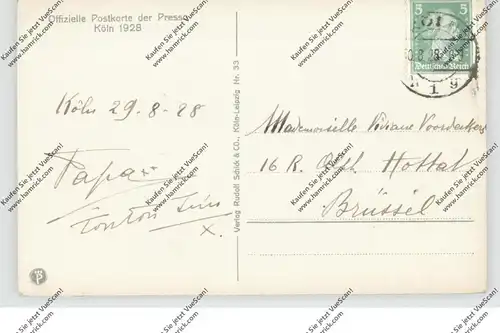 Offizielle Postkarte der Pressa
Köln 1928
5 5
Deutsches Reich
1 9
Köln 29-8-28
Papa xx
Tonton
x.
Verlag Rudolf Schick & CO., Köln-Leipzig Nr. 33
Mademoiselle Viviane Voordeckers
16 R. Hottat
Brüssel
Kaufen Sie jetzt VueScan!
www.hamrick.com